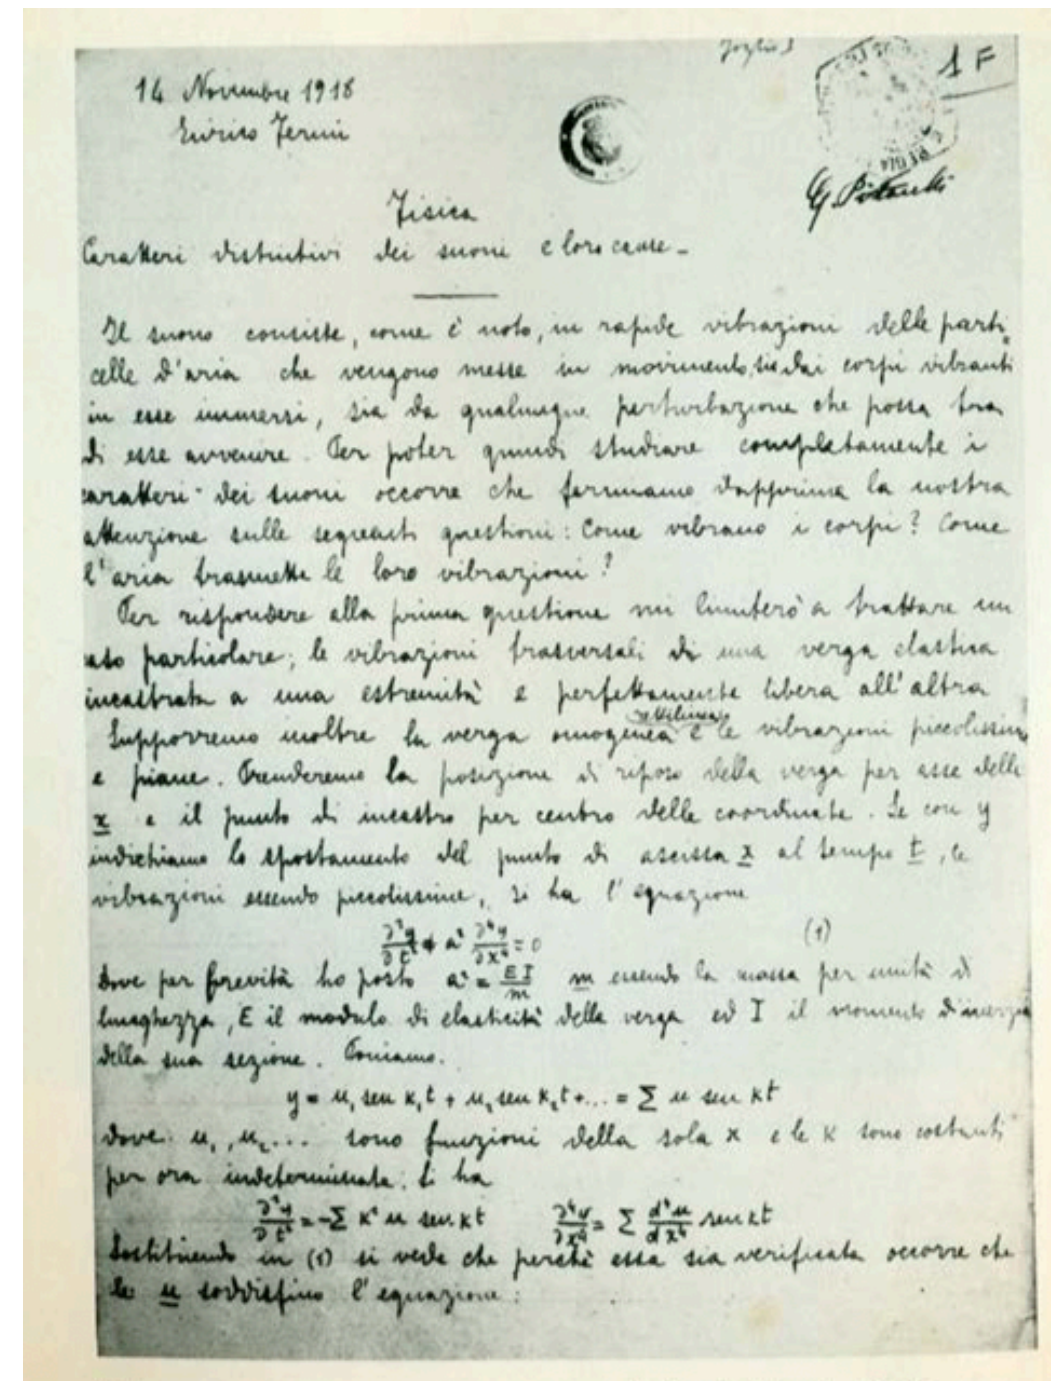 foglio 1
1 F
14 Novembre 1918
Enrico Fermi
G Pittarelli
Fisica
Caratteri distintivi dei suoni e loro cause –
Il suono consiste, come è noto, in rapide vibrazioni delle parti
celle d'aria che vengono messe in movimento, sia dai corpi vibranti
in esse immersi, sia da qualunque perturbazione che possa fra
di esse avvenire. Per poter quindi studiare completamente i
caratteri dei suoni occorre che fermiamo dapprima la nostra
attenzione sulle seguenti questioni: Come vibrano i corpi? Come
l'aria trasmette le loro vibrazioni?
Per rispondere alla prima questione mi limiterò a trattare un
caso particolare; le vibrazioni trasversali di una verga elastica
incastrata a una estremità e perfettamente libera all'altra
rettilinea
Supporremo inoltre la verga omogenea e le vibrazioni piccolissime
e piane. Prenderemo la posizione di riposo della verga per asse delle
x e il punto di incastro per centro delle coordinate. Se con y
indichiamo lo spostamento del punto di ascissa x al tempo t, le
vibrazioni essendo piccolissime, si ha l'equazione
∂²y/∂t² + a² ∂⁴y/∂x⁴ = 0 (1)
Dove per brevità ho posto a² = EI/m m essendo la massa per unità di
lunghezza, E il modulo di elasticità della verga ed I il momento d'inerzia
della sua sezione. Poniamo.
y = u₁ sen k₁t + u₂ sen k₂t + ... = Σ u sen kt
dove u₁, u₂ ... sono funzioni della sola x e le k sono costanti
per ora indeterminate. Si ha
∂²y/∂t² = -Σ k² u sen kt ∂⁴y/∂x⁴ = Σ d⁴u/dx⁴ sen kt
Sostituendo in (1) si vede che perchè essa sia verificata occorre che
le u soddisfino l'equazione: